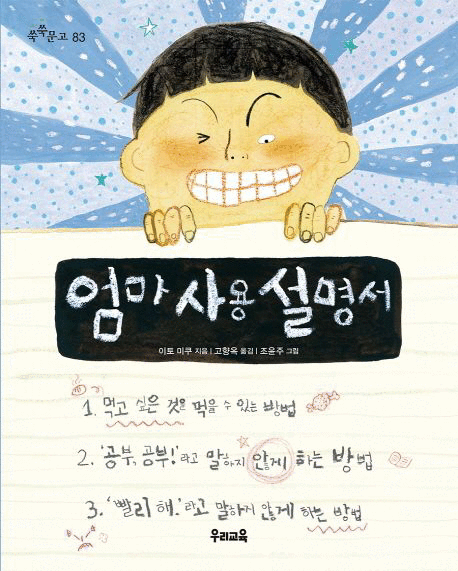 쑥쑥문고 83
엄마 사용 설명서
이토 미쿠 지음 | 고향옥 옮김 | 조윤주 그림
1. 먹고 싶은 것을 먹을 수 있는 방법
2. '공부, 공부!'라고 말하지 않게 하는 방법
3. '빨리 해.'라고 말하지 않게 하는 방법
우리교육